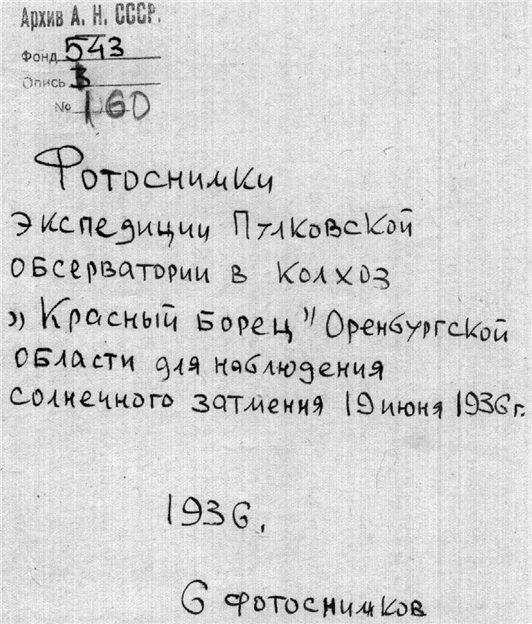 Архив А. Н. СССР.
Фонд 543
Опись
№ 160
Фотоснимки
экспедиции Пулковской
обсерватории в колхоз
„Красный Борец" Оренбургской
области для наблюдения
солнечного затмения 19 июня 1936 г.
1936.
6 фотоснимков